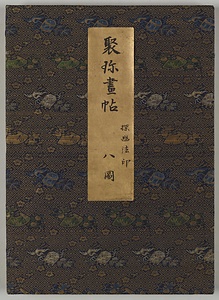 聚珍畫帖
探幽法印
八圖